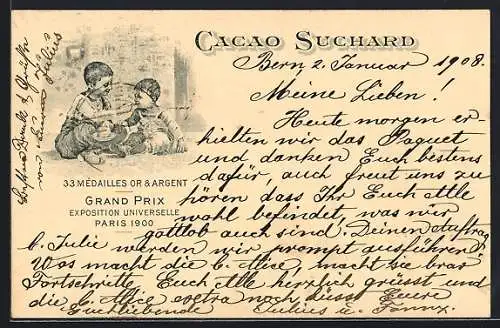 CACAO SUCHARD
Bern, 2. Januar 1908.
Meine Lieben!
Heute morgen er-
hielten wir das Paquet
und danken Euch bestens
dafür, auch freut uns zu
hören dass Ihr Euch Alle
wohl befindet, was wir
gottlob auch sind. Deinen Auftrag
l. Julie werden wir prompt ausführen.
Was macht die l. Alice, macht sie brav
Fortschritte. Euch Alle herzlich grüsst und
die l. Alice extra noch küsst Eure
Euchliebende Julius u. Fanny.
33 MÉDAILLES OR & ARGENT
GRAND PRIX
EXPOSITION UNIVERSELLE
PARIS 1900
Grüsse
von Julius